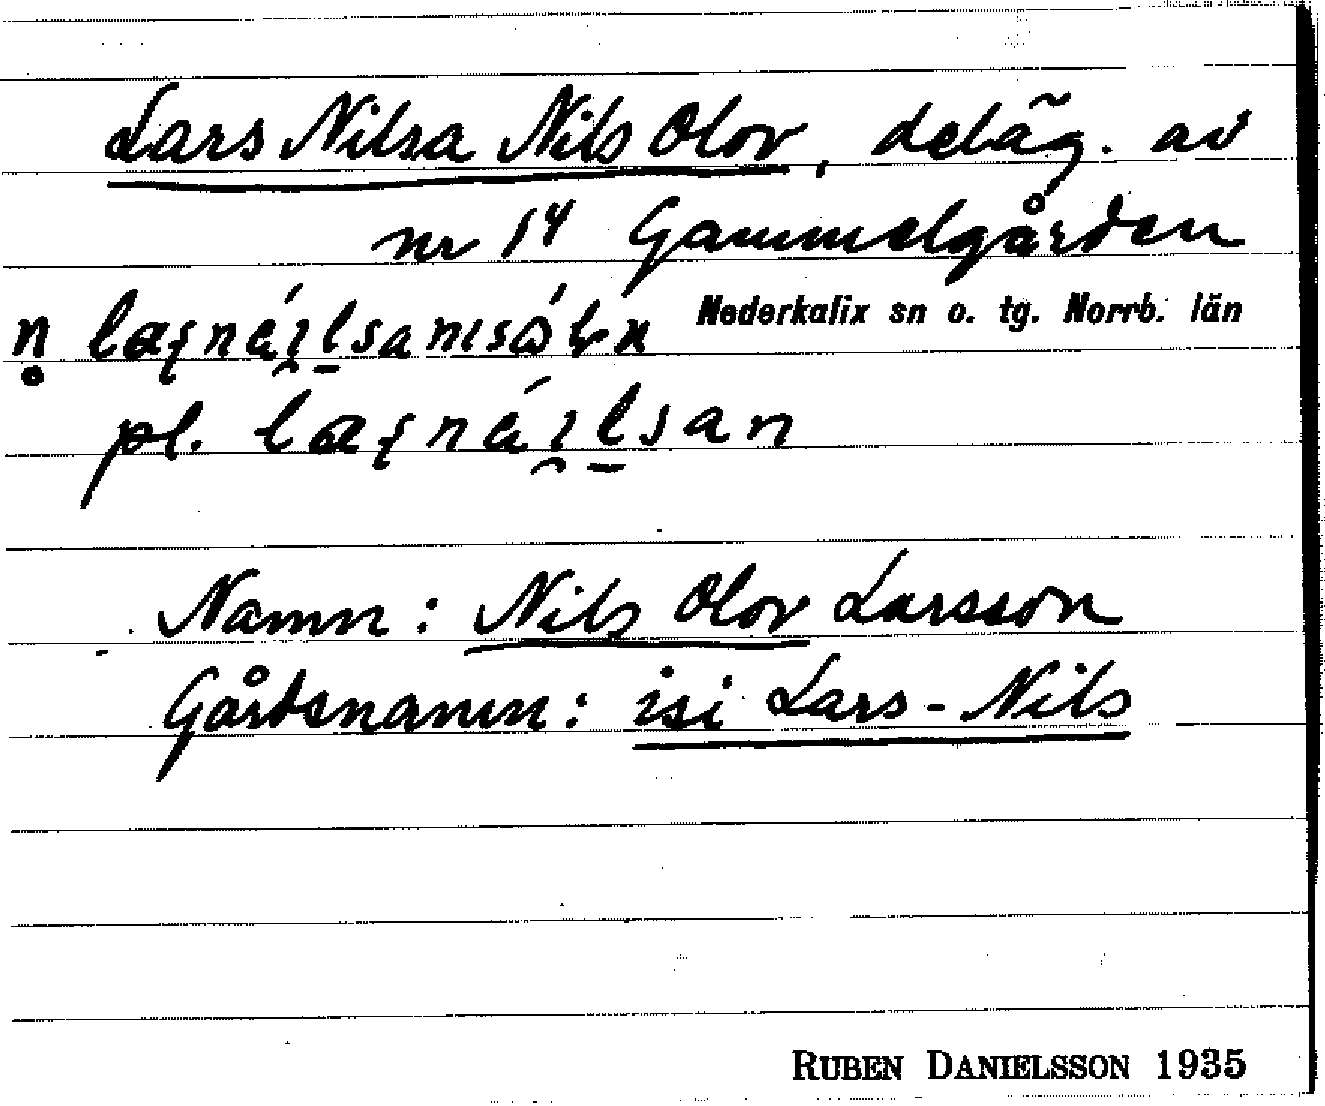 Lars Nilsa Nils Olov, deläg. av
nr 14 Gammelgården
Nederkalix sn o. tg. Norrb. län
pl.
Namn: Nils Olov Larsson
Gårdsnamn: isi Lars-Nils
RUBEN DANIELSSON 1935